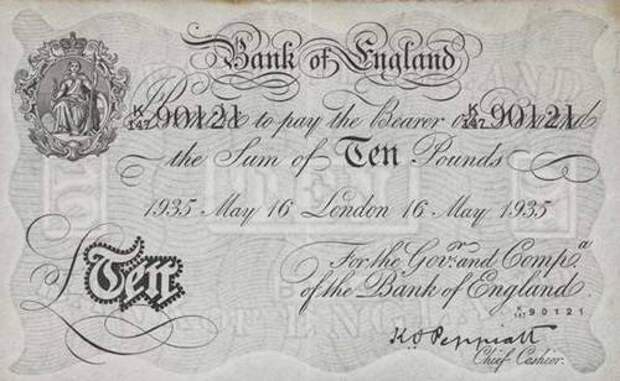 Bank of England
K/147 90121 K/147 90121
Promise to pay the Bearer on Demand
the Sum of Ten Pounds
1935 May 16 London 16 May 1935
For the Govr. and Compa.
of the Bank of England.
K/147 90121
£Ten
K O Peppiatt
Chief Cashier.